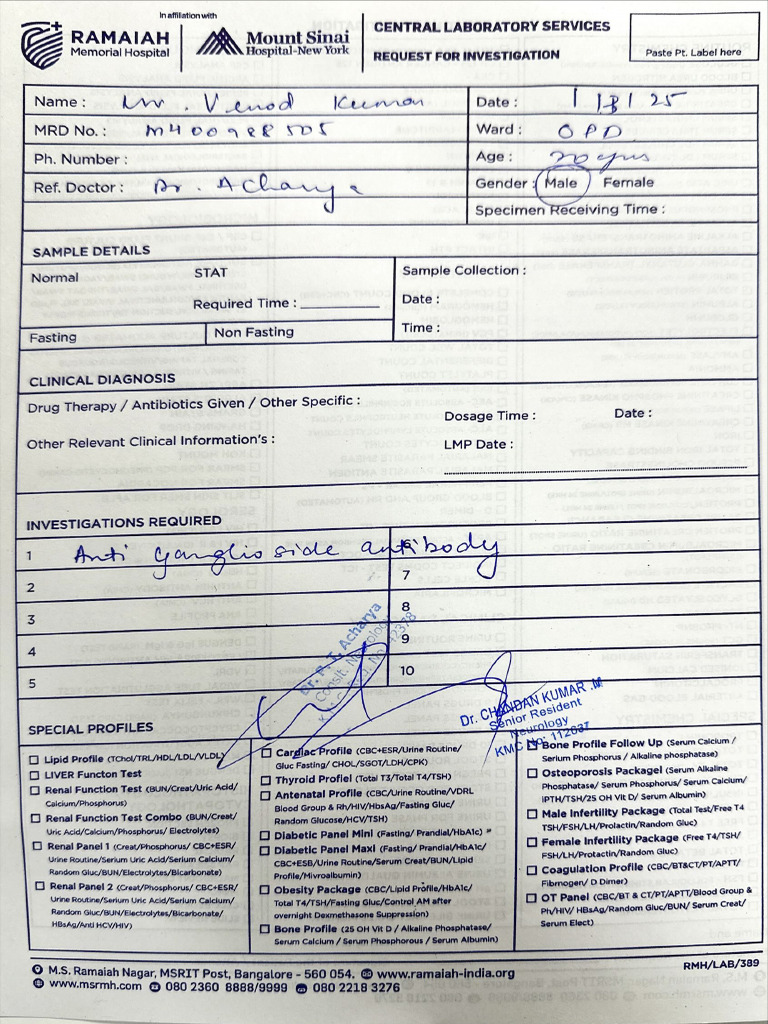 In affiliation with
RAMAIAH
Memorial Hospital
Mount Sinai
Hospital-New York
CENTRAL LABORATORY SERVICES
REQUEST FOR INVESTIGATION
Paste Pt. Label here
Name : Mr. Vinod Kumar
Date : 1/3/25
MRD No. : M400988505
Ward : OPD
Ph. Number :
Age :
Ref. Doctor : Dr. Acharya
Gender : Male Female
Specimen Receiving Time :
SAMPLE DETAILS
Normal STAT
Required Time :
Fasting Non Fasting
Sample Collection :
Date :
Time :
CLINICAL DIAGNOSIS
Drug Therapy / Antibiotics Given / Other Specific :
Dosage Time : Date :
Other Relevant Clinical Information's :
LMP Date :
INVESTIGATIONS REQUIRED
1 Anti ganglioside antibody 6
2 7
3 8
4 9
5 10
Dr. P. T. Acharya
Consit. Neurology
Dr. CHANDAN KUMAR .M
Senior Resident
Neurology
KMC No: 112637
SPECIAL PROFILES
Lipid Profile (TChol/TRL/HDL/LDL/VLDL)
LIVER Functon Test
Renal Function Test (BUN/Creat/Uric Acid/
Calcium/Phosphorus)
Renal Function Test Combo (BUN/Creat/
Uric Acid/Calcium/Phosphorus/ Electrolytes)
Renal Panel 1 (Creat/Phosphorus/ CBC+ESR/
Urine Routine/Serium Uric Acid/Serium Calcium/
Random Gluc/BUN/Electrolytes/Bicarbonate)
Renal Panel 2 (Creat/Phosphorus/ CBC+ESR/
Urine Routine/Serium Uric Acid/Serium Calcium/
Random Gluc/BUN/Electrolytes/Bicarbonate/
HBsAg/Anti HCV/HIV)
Cardiac Profile (CBC+ESR/Urine Routine/
Gluc Fasting/ CHOL/SGOT/LDH/CPK)
Thyroid Profiel (Total T3/Total T4/TSH)
Antenatal Profile (CBC/Urine Routine/VDRL
Blood Group & Rh/HIV/HbsAg/Fasting Gluc/
Random Glucose/HCV/TSH)
Diabetic Panel Mini (Fasting/ Prandial/HbA1c)
Diabetic Panel Maxi (Fasting/ Prandial/HbA1c/
CBC+ESB/Urine Routine/Serum Creat/BUN/Lipid
Profile/Mivroalbumin)
Obesity Package (CBC/Lipid Profile/HbA1c/
Total T4/TSH/Fasting Gluc/Control AM after
overnight Dexmethasone Suppression)
Bone Profile (25 OH Vit D / Alkaline Phosphatase/
Serum Calcium / Serum Phosphorous / Serum Albumin)
Bone Profile Follow Up (Serum Calcium /
Serium Phosphorus / Alkaline phosphatase)
Osteoporosis Packagel (Serum Alkaline
Phosphatase/ Serum Phosphorus/ Serum Calcium/
IPTH/TSH/25 OH Vit D/ Serum Albumin)
Male Infertility Package (Total Test/Free T4
TSH/FSH/LH/Prolactin/Random Gluc)
Female Infertility Package (Free T4/TSH/
FSH/LH/Protactin/Random Gluc)
Coagulation Profile (CBC/BT&CT/PT/APTT/
Fibrnogen/ D Dimer)
OT Panel (CBC/BT & CT/PT/APTT/Blood Group &
Ph/HIV/ HBsAg/Random Gluc/BUN/ Serum Creat/
Serum Elect)
M.S. Ramaiah Nagar, MSRIT Post, Bangalore - 560 054. www.ramaiah-india.org
www.msrmh.com 080 2360 8888/9999 080 2218 3276
RMH/LAB/389